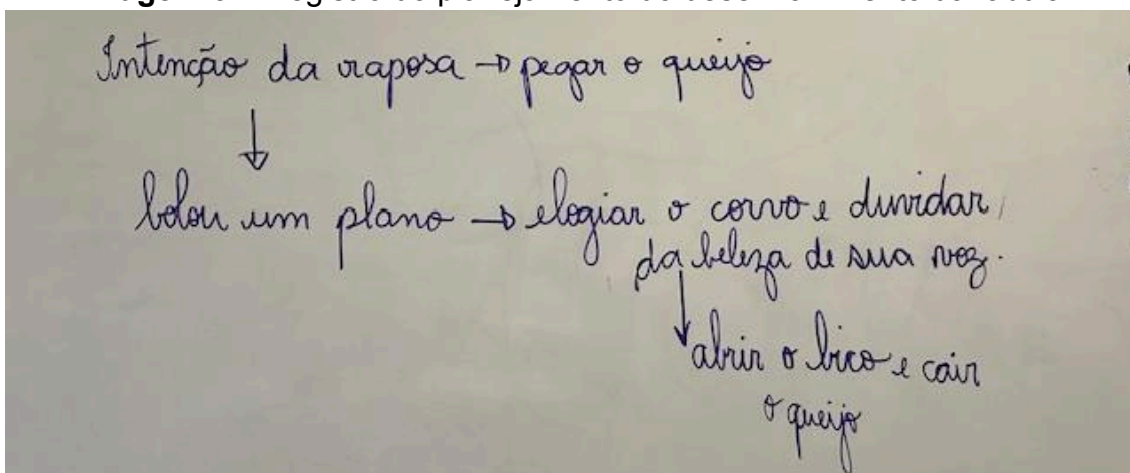 Intenção da raposa → pegar o queijo
↓
bolou um plano → elogiar o corvo e duvidar
da beleza de sua voz.
↓
abrir o bico e cair
o queijo